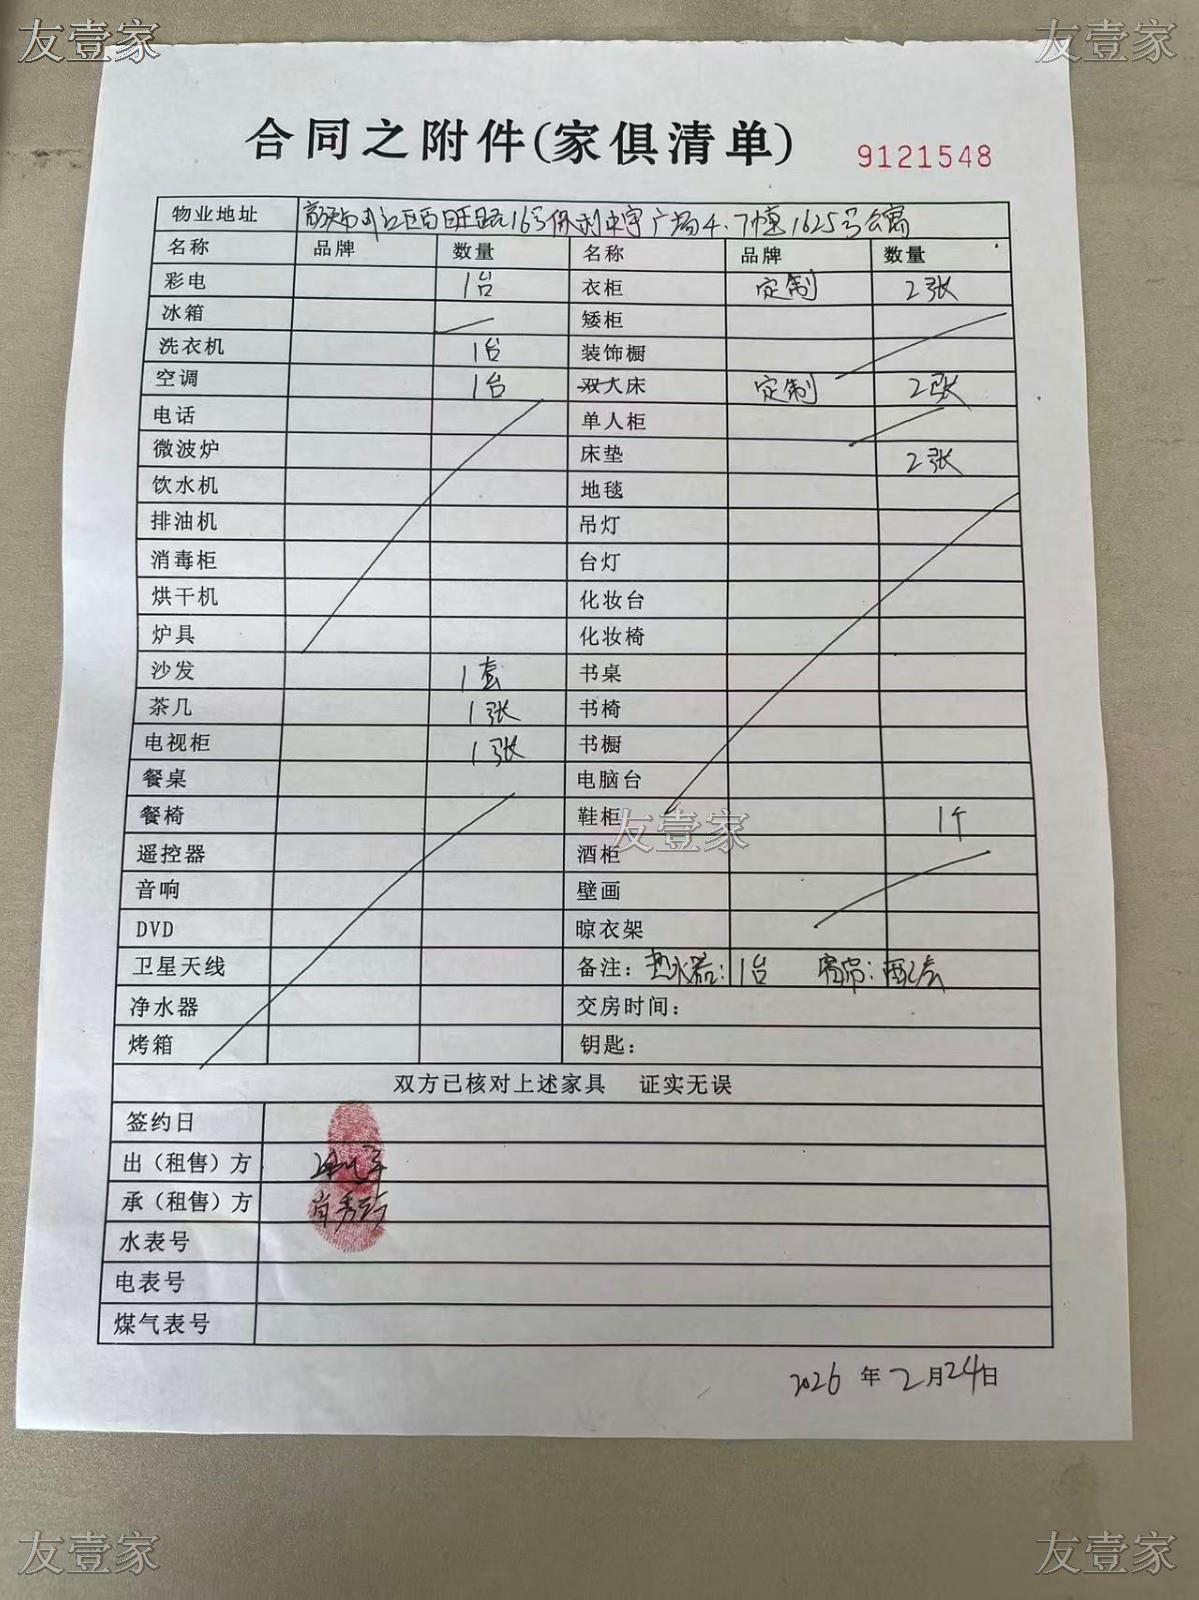 友壹家 友壹家
合同之附件(家俱清单) 9121548
物业地址 区百旺路16号保利中宇广场4、7幢1625号公寓
名称 品牌 数量 名称 品牌 数量
彩电 1台 衣柜 定制 2张
冰箱 矮柜
洗衣机 1台 装饰橱
空调 1台 双大床 定制 2张
电话 单人柜
微波炉 床垫 2张
饮水机 地毯
排油机 吊灯
消毒柜 台灯
烘干机 化妆台
炉具 化妆椅
沙发 1套 书桌
茶几 1张 书椅
电视柜 1张 书橱
餐桌 电脑台
餐椅 鞋柜 1个
友壹家
遥控器 酒柜
音响 壁画
DVD 晾衣架
卫星天线 备注：热水器：1台 窗帘：两套
净水器 交房时间：
烤箱 钥匙：
双方已核对上述家具 证实无误
签约日
出（租售）方
承（租售）方
水表号
电表号
煤气表号
2026 年 2月24日
友壹家 友壹家